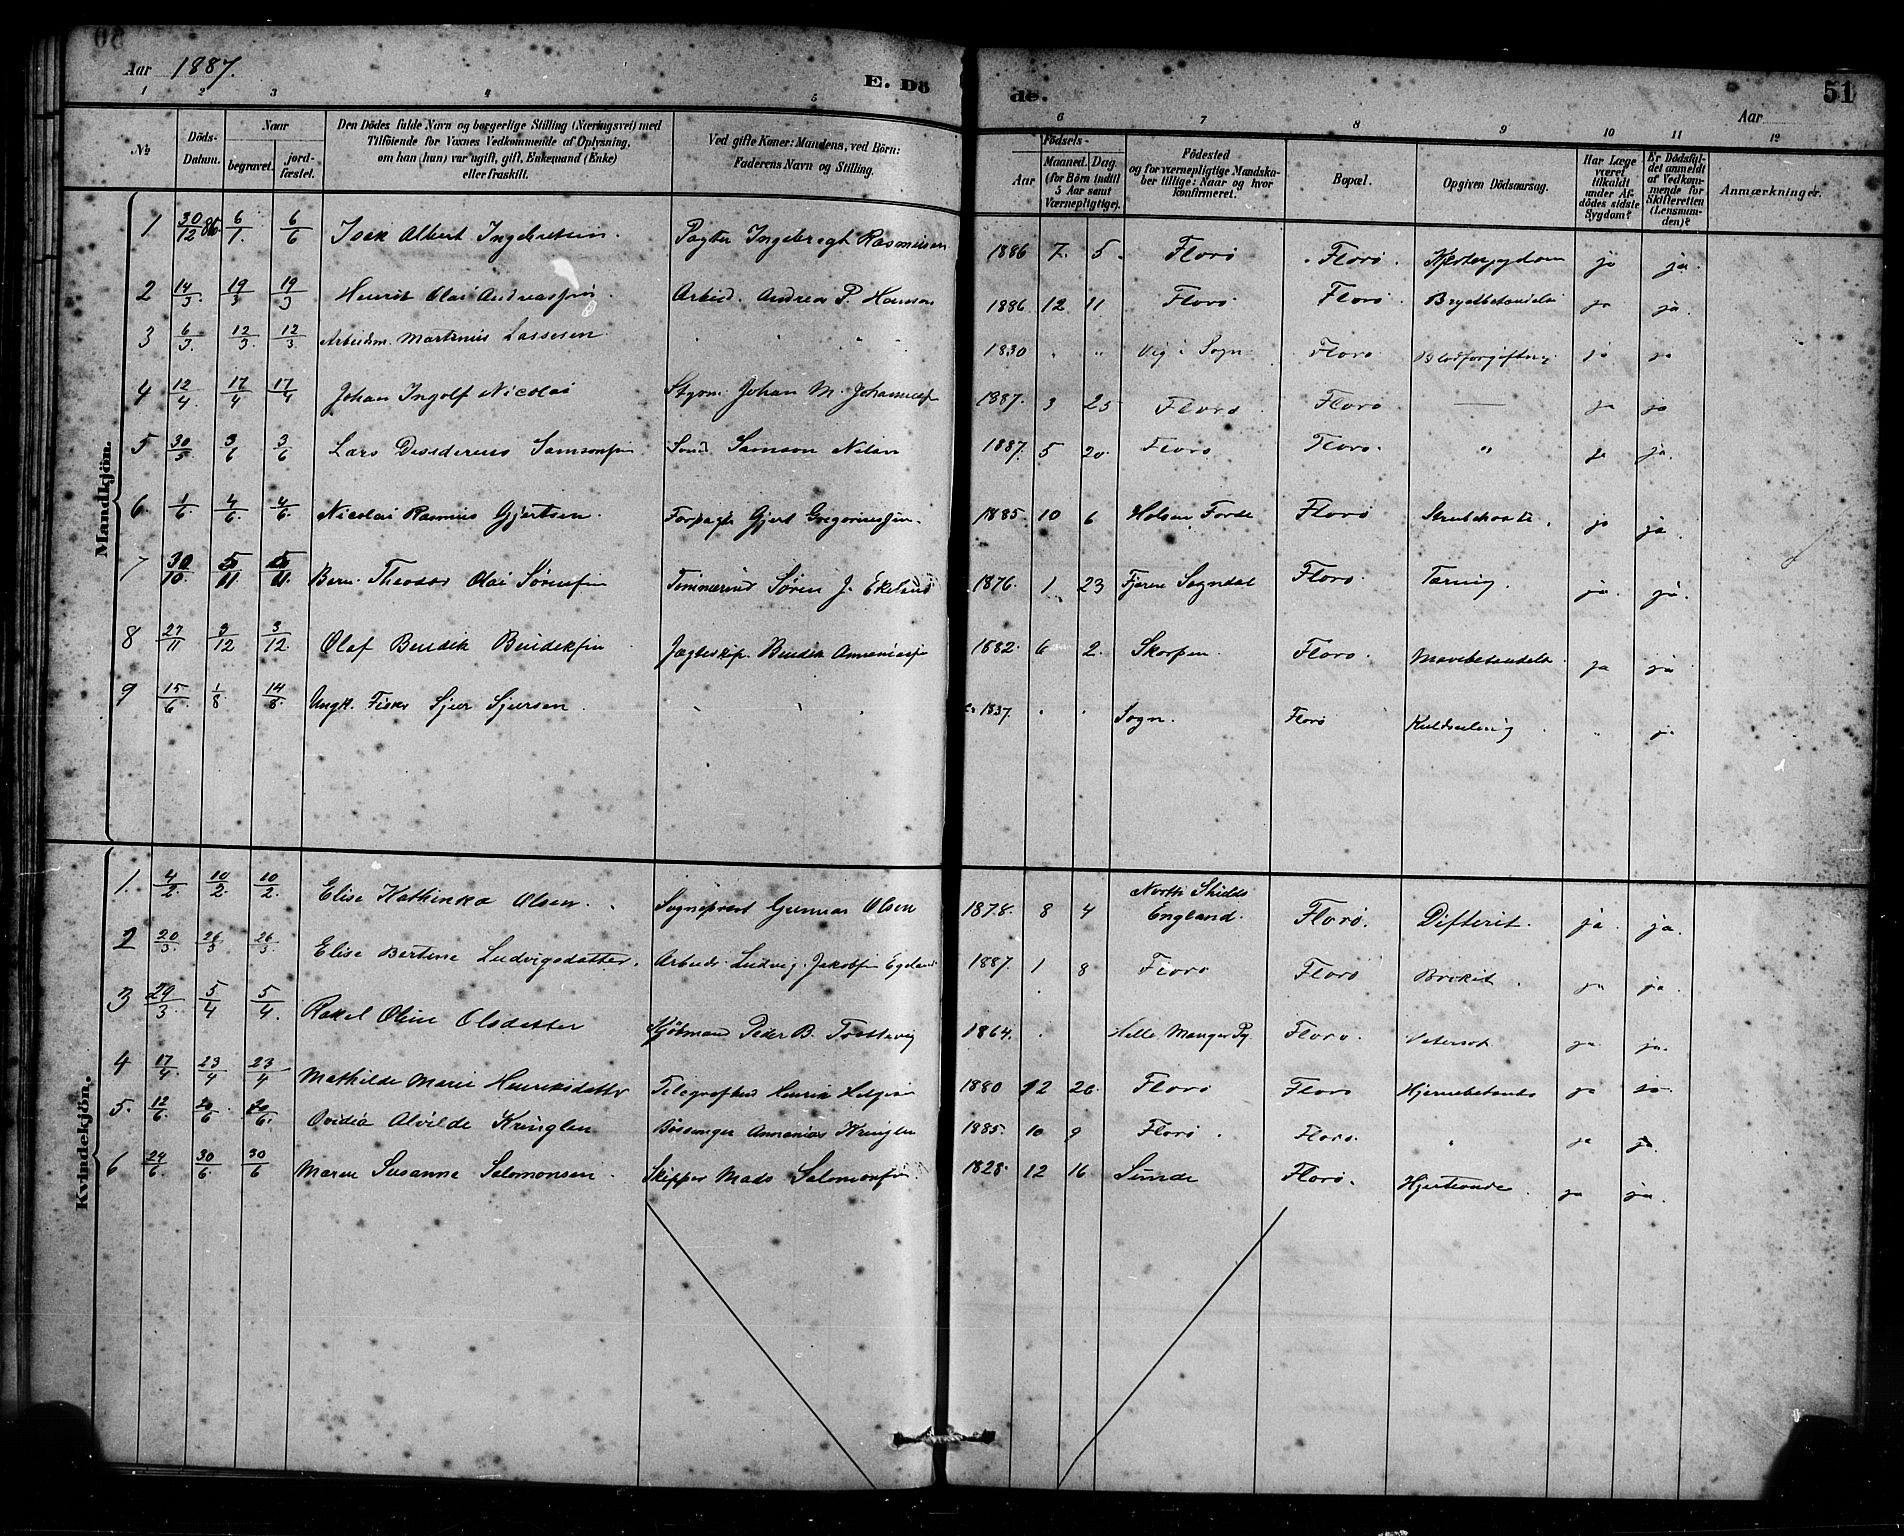 Aar 1887.
E. Dö
de.
Aar
51
1 2 3 4 5 6 7 8 9 10 11 12
№
Döds-Datum.
Naar
begravet.
jord-fæstet.
Den Dödes fulde Navn og borgerlige Stilling (Næringsvei) med
Tilföiende for Voxnes Vedkommende af Oplysning,
om han (hun) var ugift, gift, Enkemand (Enke)
eller fraskilt.
Ved gifte Koner: Mandens, ved Börn:
Faderens Navn og Stilling.
Födsels-
Aar
Maaned. Dag
(for Börn indtil
5 Aar samt
Værnepligtige).
Födested
og for værnepligtige Mandska-
ber tillige: Naar og hvor
konfirmeret.
Bopæl.
Opgiven Dödsaarsag.
Har Læge
været
tilkaldt
under Af-
dödes sidste
Sygdom?
Er Dödsfal-
det anmeldt
af Vedkom-
mende for
Skifteretten
(Lensman-
den)?
Anmærkninger.
Mandkjön.
1 30/12 86 6/1 6/6 Isak Albert Ingebretsen. Pagter Ingebregt Rasmussen 1886 7. 5. Florø Florø. ja ja.
2 14/3. 19/3 19/3 Henrik Olai Andreassen Arbeid. Andreas P. Hansen 1886 12 11 Florø. Florø. Brystbetændelse ja ja.
3 6/3. 12/3. 12/3 Arbeidsm. Martinus Lassesen 1830 " " Vig i Sogn Florø Blodforgiftning ja ja
4 12/4. 17/4 17/4 Johan Ingolf Nicolai Styrm. Johan M. Johannes 1887. 3 25 Florø. Florø. — ja ja
5 30/5 3/6 3/6 Lars Desiderius Samsonsen Samson Nilsen 1887. 5 20. Florø. Florø. " ja ja.
6. 1/6. 4/6. 4/6. Nicolai Rasmus Gjertsen. Forpagt Gjert Gregoriussen. 1885. 10 6 Holsen Førde Florø Strubehoste. ja ja
7 30/10. 5/11 5/11. Bern. Theodor Olai Sørensen Tømmermd Søren J. Ekeland 1876. 1 23 Fjære Sogndal Florø. Tæring. ja. ja.
8 27/11 3/12 3/12. Olaf Bendik Bendiksen Jagteskip. Bendik Annaniass 1882. 6 2. Skorpen. Florø. Mavebetændelse ja ja
9 15/6. 1/8 14/8. Ungk. Fisker Sjur Sjursen. 1837. Sogn. Florø Kuldseiling " ja
Kvindekjön.
1. 4/2. 10/2. 10/2. Elise Kathinka Olsen. Sogneprest Gunnar Olsen 1878. 8 4 North Shields England. Florø. Difterit. ja. ja.
2 20/3. 26/3. 26/3. Elise Bertine Ludvigsdatter. Arbeids. Ludvig Jakobsen Egeland 1887. 1 8 Florø Florø Brokit. ja ja.
3 29/3. 5/4 5/4. Rakel Oline Olsdatter Kjøbmand Peder B. 1864. Helle Manger Pg. Florø. Vatersot ja ja.
4 17/4. 23/4 23/4 Mathilde Marie Henriksdatter Henrik 1880 12 26. Florø Florø Hjernebetænds ja ja
5. 12/6. 20/6. 20/6. Ovidia Alvilde Kringlen Annanias Kringlen 1885. 10 9 Florø. Florø. " ja ja.
6 24/6 30/6. 30/6 Maren Susanne Salomonsen. Skipper Mads Salomonsen. 1828. 12 16 Sunde Florø. Hjerteonde. ja ja.